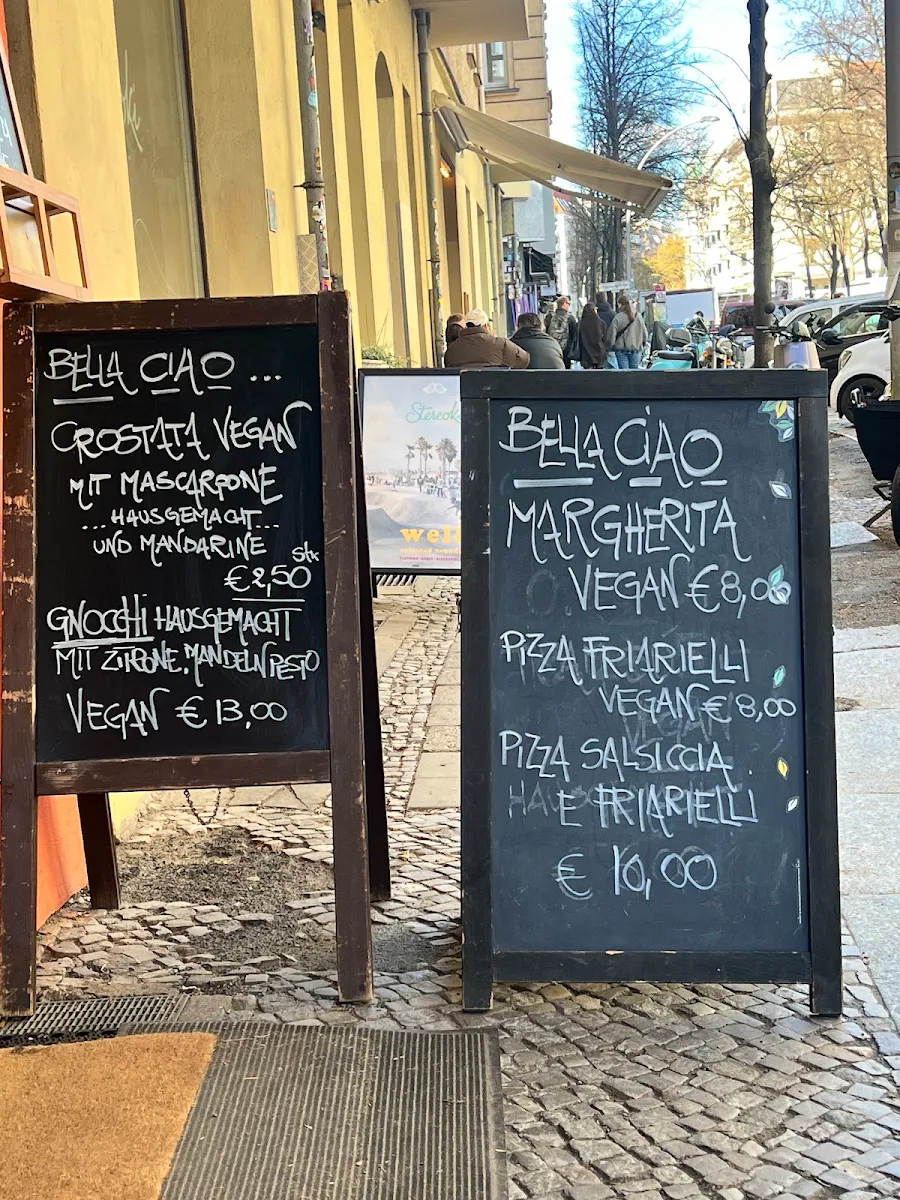 BELLA CIAO ...
CROSTATA VEGAN
MIT MASCARPONE
...HAUSGEMACHT...
UND MANDARINE
Stk
€2,50
GNOCCHI HAUSGEMACHT
MIT ZITRONE, MANDELN PESTO
VEGAN € 13,00
BELLA CIAO
MARGHERITA
VEGAN € 8,00
PIZZA FRIARIELLI
VEGAN € 8,00
PIZZA SALSICCIA
E FRIARIELLI
€ 10,00